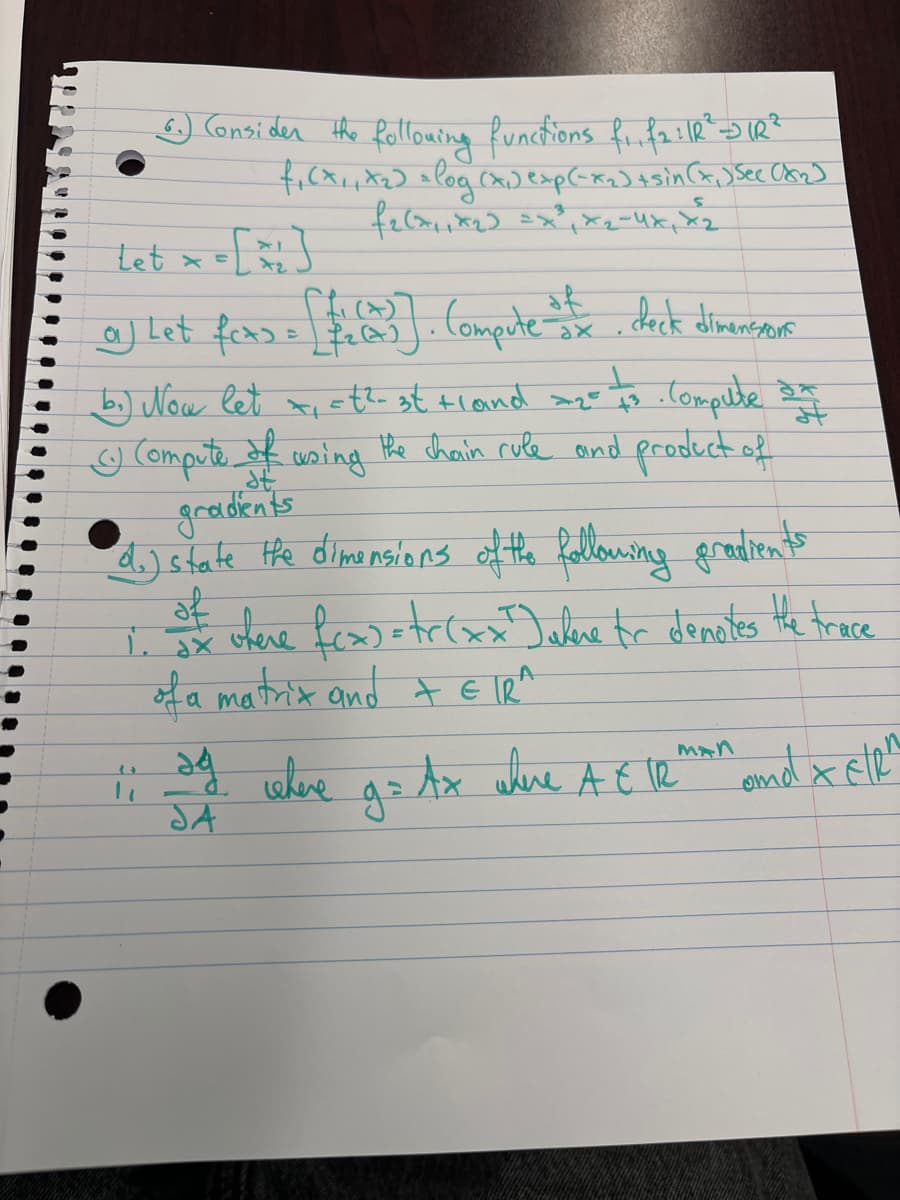 6.) Consider the following functions f₁,f₂:ℝ²→ℝ²
f₁(x₁,x₂) = log(x₁)exp(-x₂)+sin(x₁)sec(x₂)
f₂(x₁,x₂) = x³₁x₂-4x₁x₂⁵
Let x = [x₁ x₂]
a) Let f(x) = [f₁(x) f₂(x)]. Compute ∂f/∂x. check dimensions
b.) Now let x₁=t²-3t+1 and x₂=1/t³. Compute ∂x/∂t
c) Compute ∂f/∂t using the chain rule and product of
gradients
d.) state the dimensions of the following gradients
i. ∂f/∂x where f(x)=tr(xxᵀ) where tr denotes the trace
of a matrix and x ∈ ℝⁿ
ii ∂g/∂A where g=Ax where A ∈ ℝᵐˣⁿ and x ∈ ℝⁿ